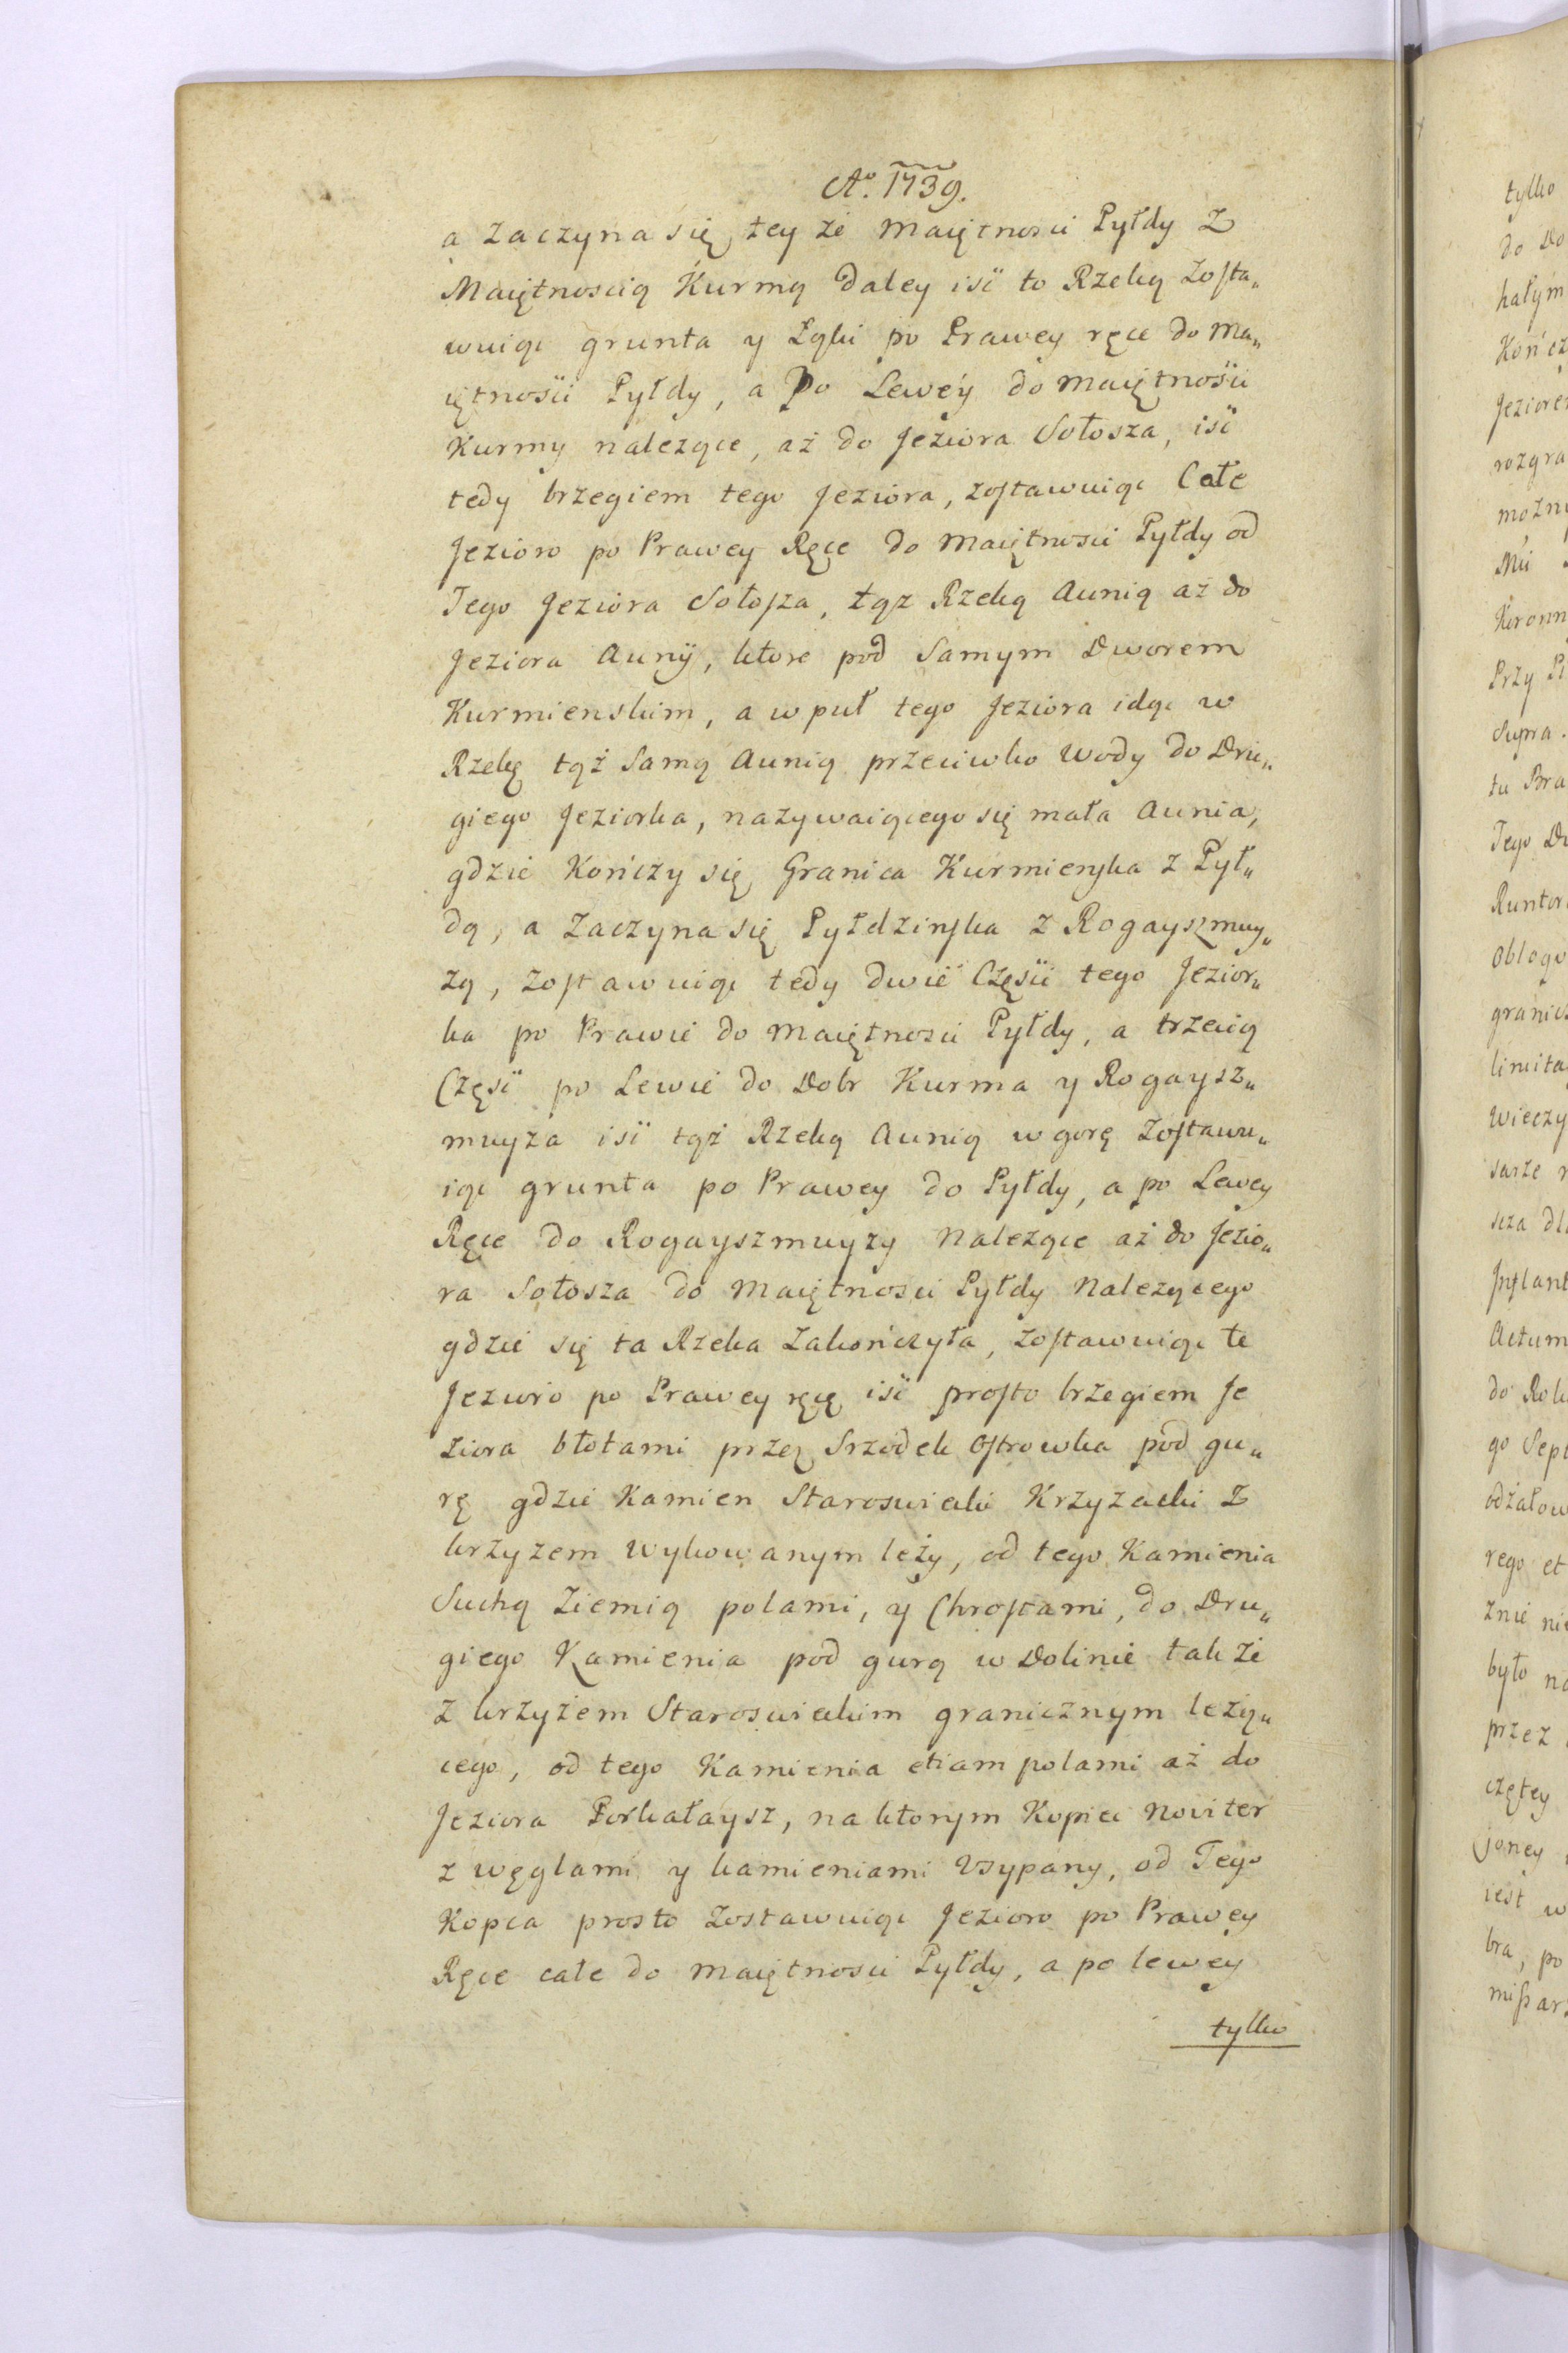 Ao. 1739.
a zaczyna się tey że maiętności Pyłdy z
Maiętnoscią Kurmą daley iść to Rzeką zosta„
wuiąc grunta y Łąki po Prawey ręce do Ma„
iętności Pyłdy, a Po Lewéy do maiętności
Kurmy nalezące, aż do Jeziora Sołosza, iść
tedy brzegiem tego Jeziora, zostawuiąc Całe
Jezioro po Prawey Ręce do Maiętnosci Pyłdy od
Tego Jeziora Sołosza, tąz Rzeką Aunią aż do
Jeziora Auny, ktore pod Samym Dworem
Kurmienskim, a w puł tego Jeziora idąc w
Rzekę tąż Samą Aunią przeciwko wody do Dru„
giego Jeziorka, nazywaiącego się mała Aunia,
gdzie Kończy się Granica Kurmienska z Pył„
dą, a Zaczyna się Pyłdzinska z Rogayszmuy„
zą, zostawuiąc tedy dwie Częsci tego Jezior„
ka po Prawie do maiętnosci Pyłdy, a trzecią
Część po Lewie do Dobr Kurma y Rogaysz„
muyza iść tąż Rzeką Aunią w gorę zostawu„
iąc grunta po Prawey do Pyłdy, a po Lewey
Ręce do Rogayszmuyzy Nalezące aż do Jezio„
ra Sołosza do Maiętnosci Pyłdy Nalezącego
gdzie się ta Rzeka zakończyła, zostawuiąc te
Jezioro po Prawey ręcę iść prosto brzegiem Je
ziora błotami przez Srzodek Ostrowka pod gu„
rę gdzie Kamien Staroswiecki Krzyzacki z
krzyzem wykowanym leży, od tego Kamienia
Suchą Ziemią polami, y Chrostami, do Dru„
giego Kamienia pod gurą w Dolinie tak że
z krzyżem Staroswieckim granicznym leżą„
cego, od tego Kamienia etiam polami aż do
Jeziora Porkałaysz, na ktorym Kopiec noviter
z węglami y kamieniami Usypany, od Tego
Kopca prosto zostawuiąc Jezioro po Prawey
Ręce całe do maiętnosci Pyłdy, a po lewey
tylko
tylko
do Do
hałym
Kończ
Jeziore
rozgra
możn
Mci
Koronn
Przy Pi
Supra.
tu Bra
Tego Du
Runtor
Oblogo
granic
limita
wieczy
sarze
scza dl
Inflant
Actum
do Rok
go Sept
odżałow
rego et
znie nie
było na
przez
czętey
joney
iest w
bra, po
missar